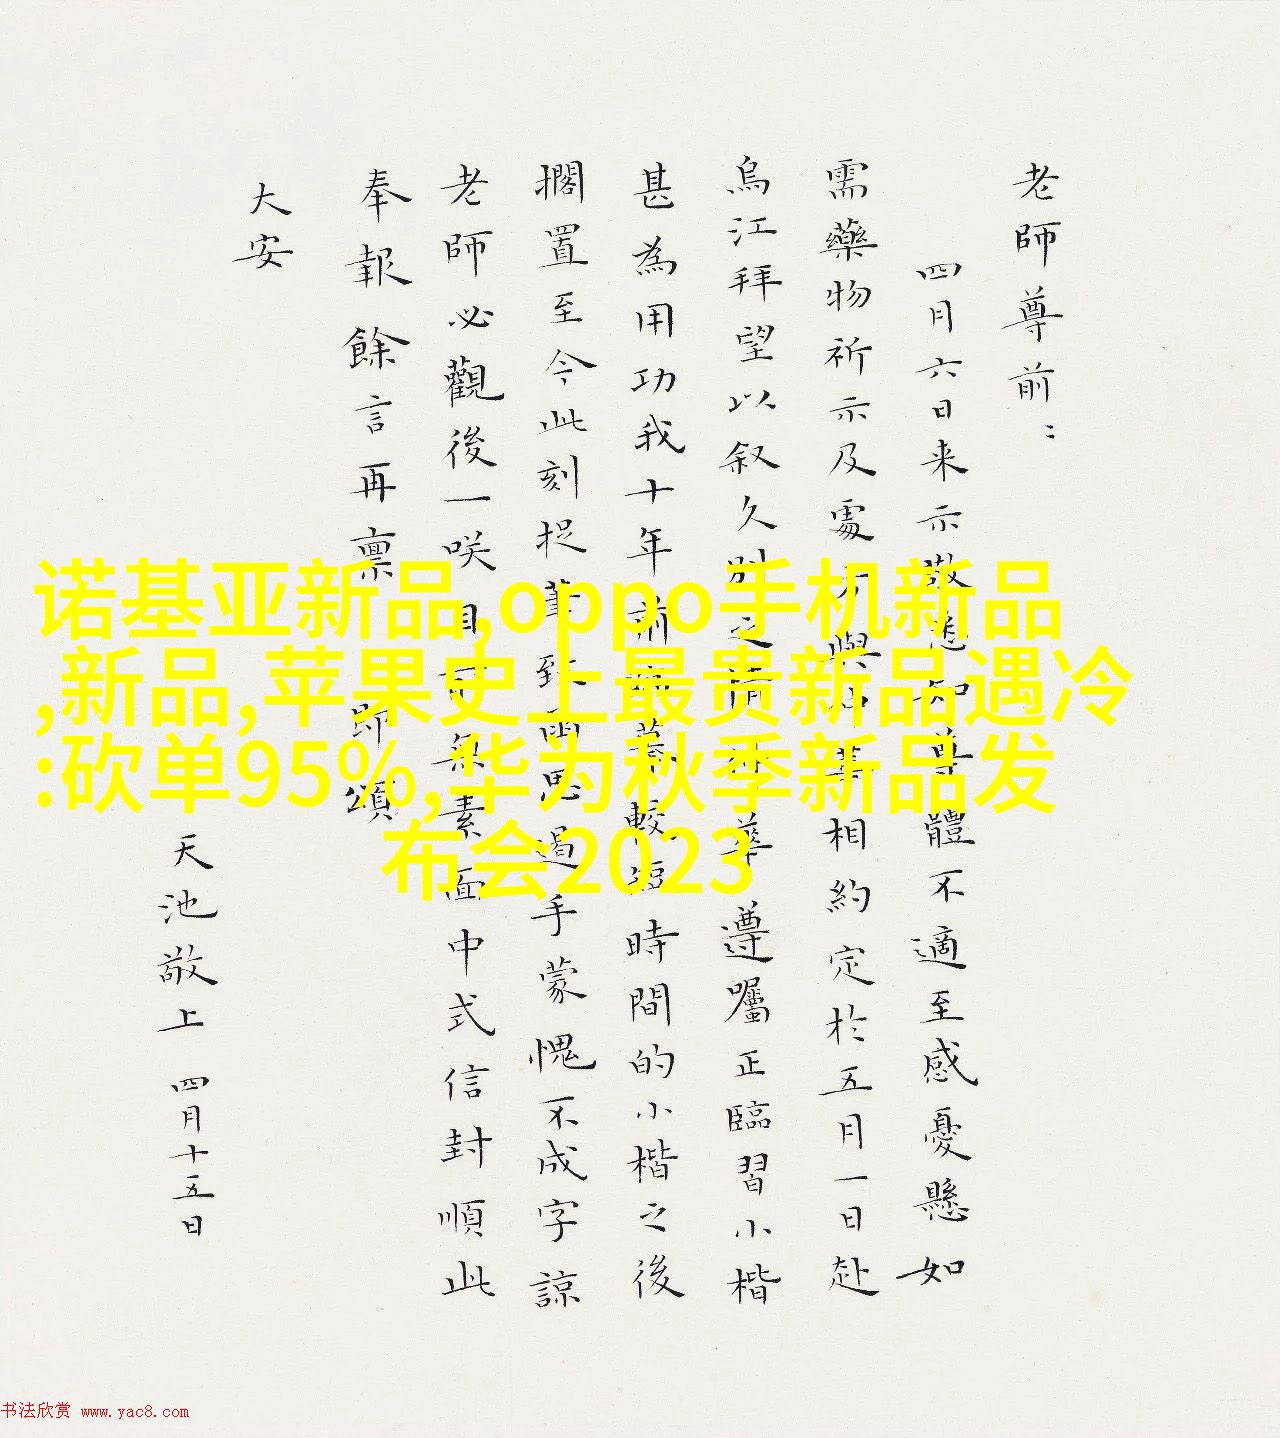 老師尊前：
四月六日来示敬悉知尊體不適至感憂懸如
需藥物祈示及處 與 相約定於五月一日赴
烏江拜望以叙久別之情 華遵囑正臨習小楷
甚為用功我十年前 較短時間的小楷之後
擱置至今此刻捉筆致函思遏手蒙愧不成字諒
老師必觀後一咲 素面中式信封順此
奉報餘言再禀 即頌
大安
天池敬上 四月十五日
诺基亚新品,oppo手机新品
,新品,苹果史上最贵新品遇冷
:砍单95%,华为秋季新品发
布会2023
书法欣赏 www.yac8.com